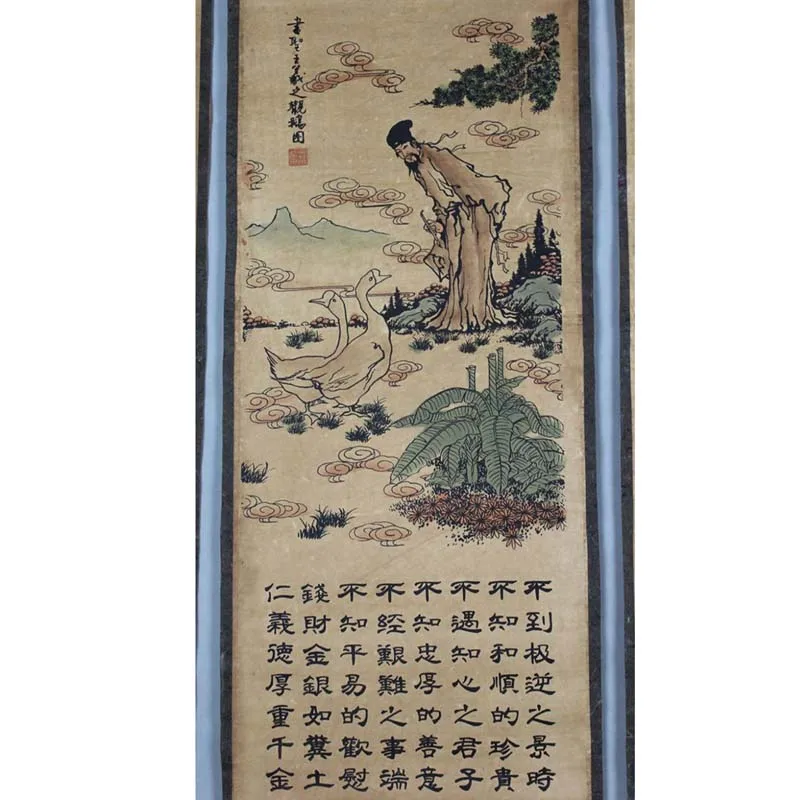 書聖王羲之觀鵝图
不到极逆之景時
不知和順的珍貴
不遇知心之君子
不知忠厚的善意
不經艱難之事端
不知平易的歡慰
錢財金銀如糞土
仁義德厚重千金